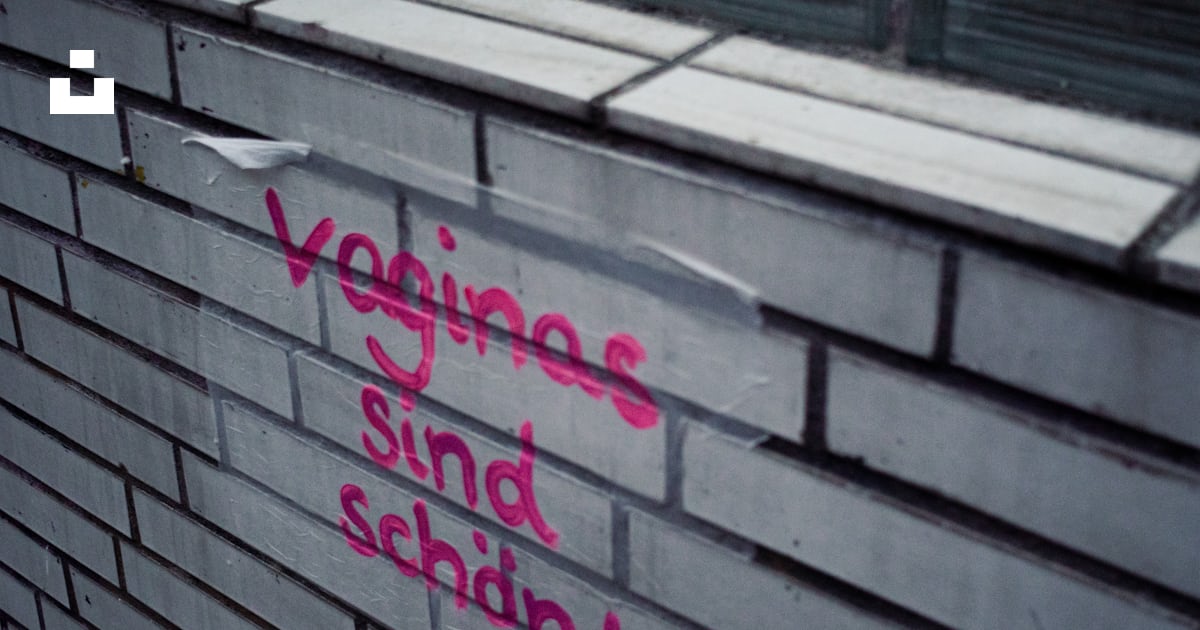 Vaginas
sind
schön!